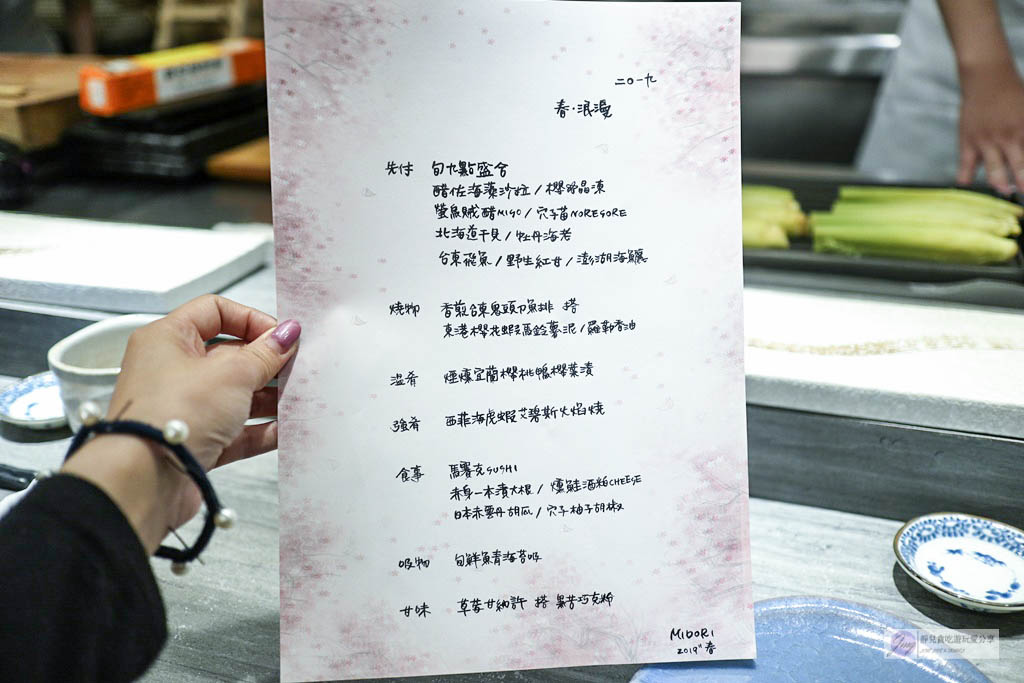 二〇一九
春·浪漫
先付 旬九點盛合
醋佐海藻沙拉/櫻晶凍
螢烏賊醋MISO/穴子苗NORESORE
北海道干貝/牡丹海老
台東飛魚/野生紅甘/澎湖海鱺
燒物 香煎台東鬼頭刀魚排 搭
東港櫻花蝦馬鈴薯泥/羅勒香油
溫肴 煙燻宜蘭櫻桃鴨櫻葉漬
強肴 西菲海虎蝦艾碧斯火焰燒
食事 馬賽克SUSHI
赤身一本漬大根/燻鮭酒粕CHEESE
日本赤雲丹胡瓜/穴子柚子胡椒
吸物 旬鮮魚青海苔吸
甘味 草莓甘納許 搭 黑苦巧克粉
MIDORI
2019" 春
靜兒貪吃遊玩愛分享